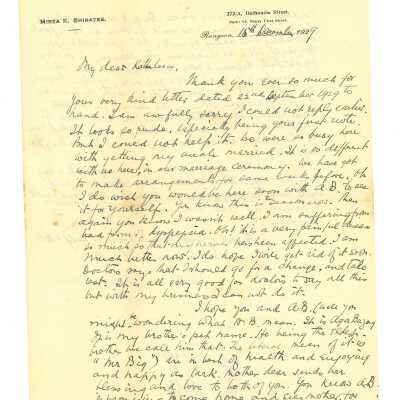 MIRZA K. SHIRAZEE
372/A, Dalhousie Street,
Rangoon, 16th December 1929
My dear
Thank you ever so much for
your very kind letter dated 22nd September 1929 to
hand. I am awfully sorry I could not reply earlier.
It looks so rude, especially being your first note.
But I could not help it. We were so busy here
with getting my married. It is so different
with us here, in our marriage ceremony. We have got
to make arrangements for some weeks before. Oh
I do wish you would be here soon with A.B. to see
it for yourself. You know this is season. Then
again you know I wasn't well. I am suffering from
bad form of dyspepsia. But it is a very painful disease
so much so that my nerves has been affected. I am
much better now. I do hope I will get rid of it soon.
Doctors say that I should go for a change, and take
rest. It is all very good for doctors to say all this
but with my business I can not do it.
I hope you and A.B. (well you
might wondering what A.B. mean. It is Aga Bozorg
It is my brother's pet name. He being the eldest
brother we call him that. The literal mean of it is
"Mr Big") are in best of health and enjoying
and happy as lark. Mother dear sends her
blessing and love to both of you. You know A.B.
to come home and mother, for